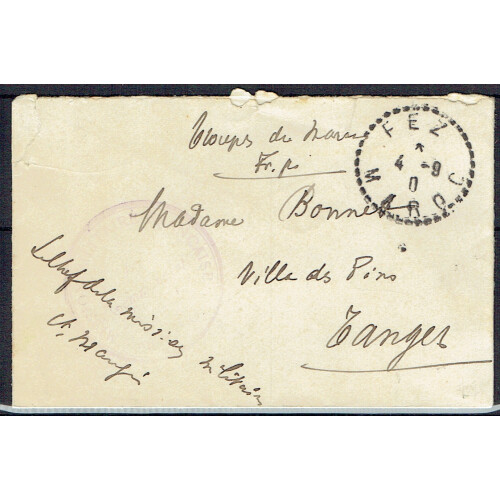 Troupes du Maroc
Fr. pi
FEZ
4 -9
0
MAROC
Madame Bonnet
Villa des Pins
Tanger
Le chef de la mission militaire
Ct. Mangin